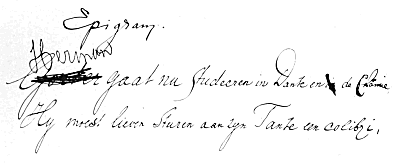 Epigram.
Herman
gaat nu studeeren in Dante en de Chimie
Hy moest liever sturen aan zyn Tante een colibri,